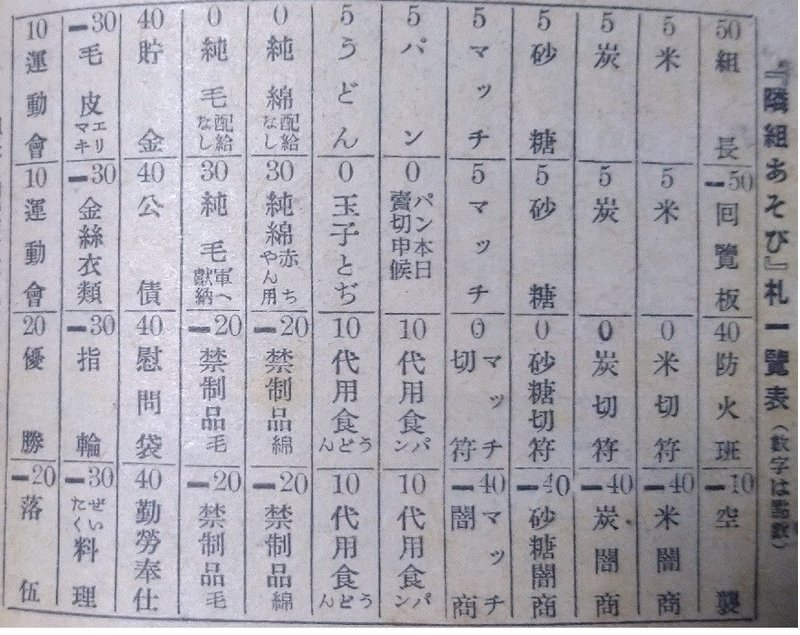 『隣組あそび』札一覽表（數字は點數）
50 組長
−50 回覽板
40 防火班
−10 空襲
5 米
5 米
0 米切符
−40 米闇商
5 炭
5 炭
0 炭切符
−40 炭闇商
5 砂糖
5 砂糖
0 砂糖切符
−40 砂糖闇商
5 マッチ
5 マッチ
0 マッチ切符
−40 マッチ闇商
5 パン
0 パン本日賣切申候
10 代用食パン
10 代用食パン
5 うどん
0 玉子とぢ
10 代用食うどん
10 代用食うどん
0 純綿配給なし
30 純綿赤ちやん用
−20 禁制品綿
−20 禁制品綿
0 純毛配給なし
30 純毛軍へ獻納
−20 禁制品毛
−20 禁制品毛
40 貯金
40 公債
40 慰問袋
40 勤勞奉仕
−30 毛皮エリマキ
−30 金絲衣類
−30 指輪
−30 ぜいたく料理
10 運動會
10 運動會
20 優勝
−20 落伍